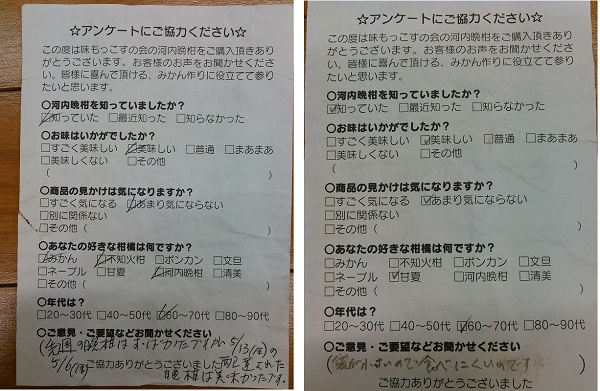 ☆アンケートにご協力ください☆
この度は味もっこすの会の河内晩柑をご購入頂きあり
がとうございます。お客様のお声をお聞かせくださ
い。皆様に喜んで頂ける、みかん作りに役立てて参り
たいと思います。
○河内晩柑を知っていましたか?
☑知っていた □最近知った □知らなかった
○お味はいかがでしたか?
□すごく美味しい ☑美味しい □普通 □まあまあ
□美味しくない □その他
( )
○商品の見かけは気になりますか?
□すごく気になる ☑あまり気にならない
□別に関係ない
□その他( )
○あなたの好きな柑橘は何ですか?
☑みかん ☑不知火柑 □ポンカン □文旦
□ネーブル □甘夏 ☑河内晩柑 □清美
□その他( )
○年代は?
□20～30代 □40～50代 ☑60～70代 □80～90代
○ご意見・ご要望などお聞かせください
(先週の晩柑はすっぱかったですが 5/13(金)の
5/6(金) 配達された
ご協力ありがとうございました
晩柑は美味かったです。
☆アンケートにご協力ください☆
この度は味もっこすの会の河内晩柑をご購入頂きあり
がとうございます。お客様のお声をお聞かせくださ
い。皆様に喜んで頂ける、みかん作りに役立てて参り
たいと思います。
○河内晩柑を知っていましたか?
☑知っていた □最近知った □知らなかった
○お味はいかがでしたか?
□すごく美味しい ☑美味しい □普通 □まあまあ
□美味しくない □その他
( )
○商品の見かけは気になりますか?
□すごく気になる ☑あまり気にならない
□別に関係ない
□その他( )
○あなたの好きな柑橘は何ですか?
□みかん □不知火柑 □ポンカン □文旦
□ネーブル ☑甘夏 □河内晩柑 □清美
□その他( )
○年代は?
□20～30代 □40～50代 ☑60～70代 □80～90代
○ご意見・ご要望などお聞かせください
(袋が小さいので食べにくいのです )
ご協力ありがとうございました